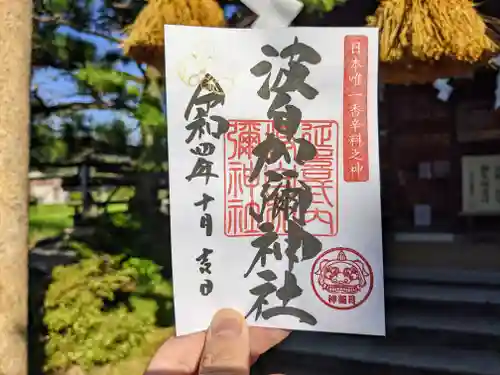 日本唯一香辛料之神
波自加彌神社
延喜式内
波自加
彌神社
神月
令和四年十月吉日